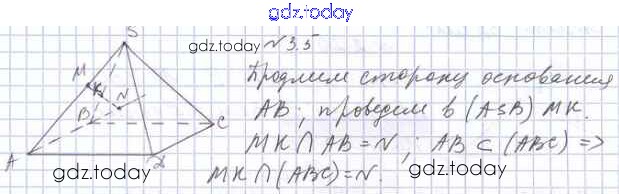 gdz.today
S
gdz.today №3.5
M
K
N
B
C
A
D
Продлим сторону основания
AB; проведем в (ASB) MK.
MK ∩ AB = N; AB ⊂ (ABC) =>
MK ∩ (ABC) = N.
gdz.today
gdz.today